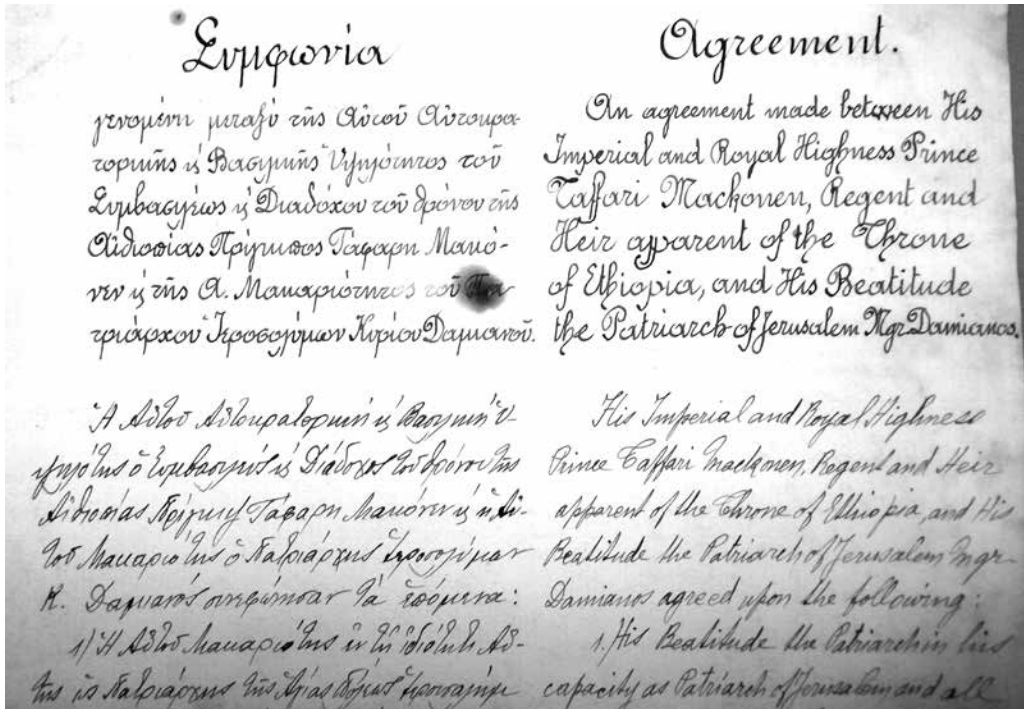 Συμφωνία
γενομένη μεταξὺ τῆς Αὐτοῦ Αὐτοκρα-
τορικῆς ϗ Βασιλικῆς Ὑψηλότητος τοῦ
Συμβασιλέως ϗ Διαδόχου τοῦ θρόνου τῆς
Αἰθιοπίας Πρίγκιπος Τάφαρη Μακό-
νεν ϗ τῆς Α. Μακαριότητος τοῦ Πα
τριάρχου Ἱεροσολύμων Κυρίου Δαμιανοῦ.
Ἡ Αὐτοῦ Αὐτοκρατορικὴ ϗ Βασιλικὴ Ὑ-
ψηλότης ὁ Συμβασιλεὺς ϗ Διάδοχος τοῦ θρόνου τῆς
Αἰθιοπίας Πρίγκιψ Τάφαρη Μακόνεν ϗ ἡ Αὐ-
τοῦ Μακαριότης ὁ Πατριάρχης Ἱεροσολύμων
Κ. Δαμιανὸς συνεφώνησαν τὰ ἑπόμενα:
1) Ἡ Αὐτοῦ Μακαριότης ἐν τῇ ἰδιότητι Αὐ-
τῆς ὡς Πατριάρχης τῆς Ἁγίας Πόλεως Ἱερουσαλὴμ
Agreement.
An agreement made between His
Imperial and Royal Highness Prince
Taffari Mackonen, Regent and
Heir apparent of the Throne
of Ethiopia, and His Beatitude
the Patriarch of Jerusalem Mgr Damianos.
His Imperial and Royal Highness
Prince Taffari Mackonen, Regent and Heir
apparent of the Throne of Ethiopia, and His
Beatitude the Patriarch of Jerusalem Mgr
Damianos agreed upon the following:
1.) His Beatitude the Patriarch in his
capacity as Patriarch of Jerusalem and all